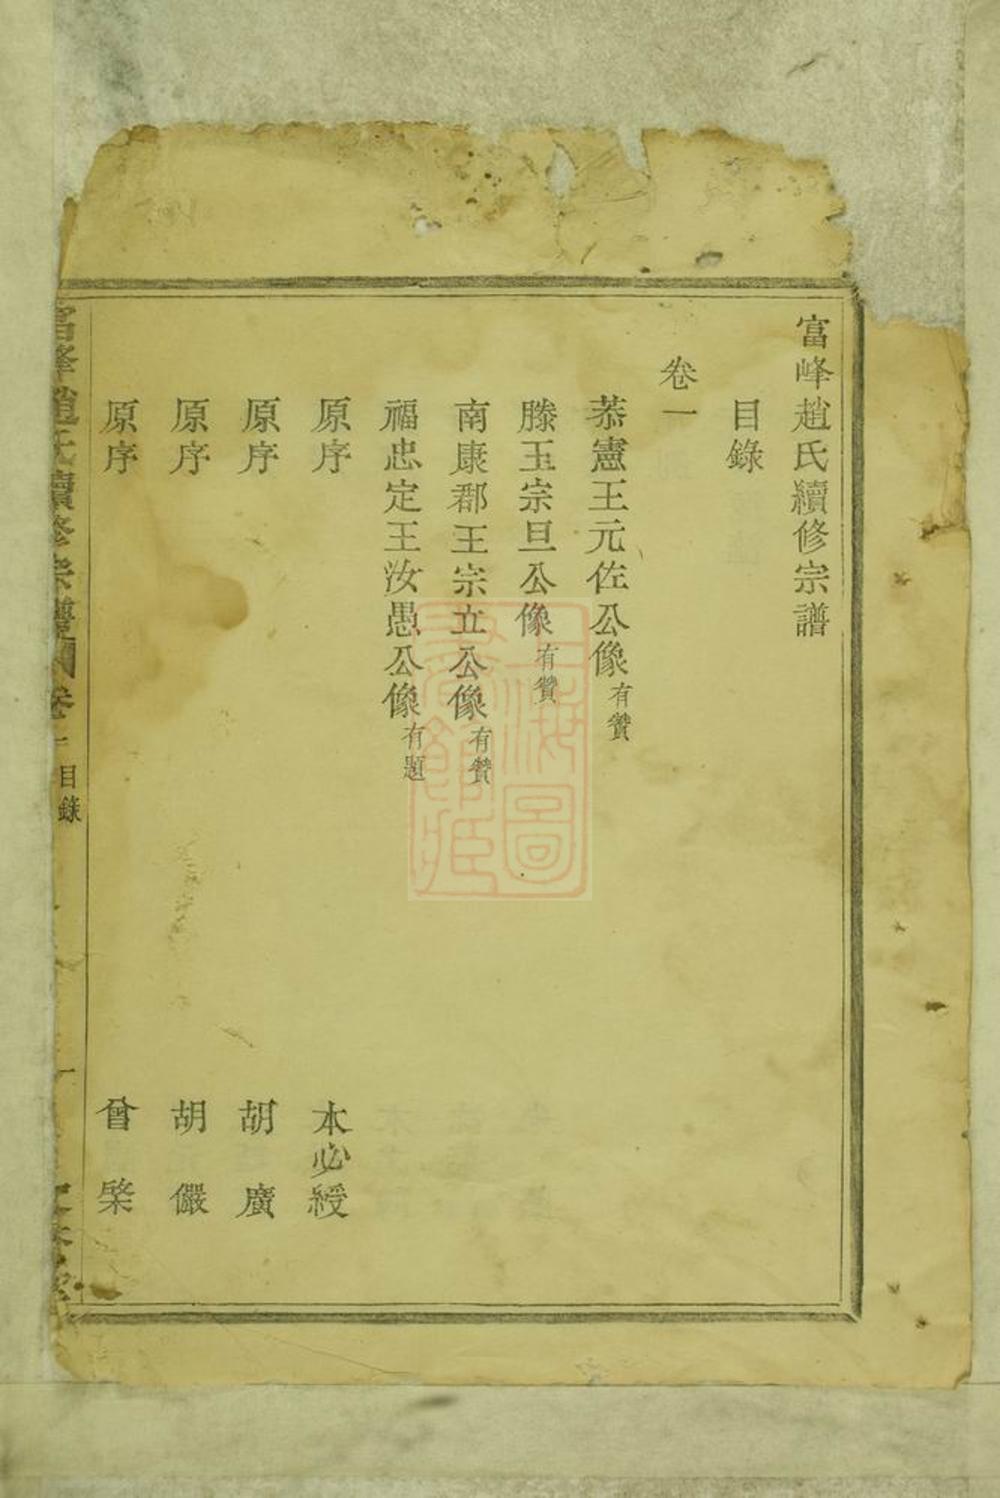 富峰趙氏續修宗譜
目錄
卷一
恭憲王元佐公像有贊
滕王宗旦公像有贊
南康郡王宗立公像有贊
福忠定王汝愚公像有題
原序 本必綬
原序 胡廣
原序 胡儼
原序 曾棨
富峰趙氏續修宗譜 卷一 目錄
上海圖書館藏